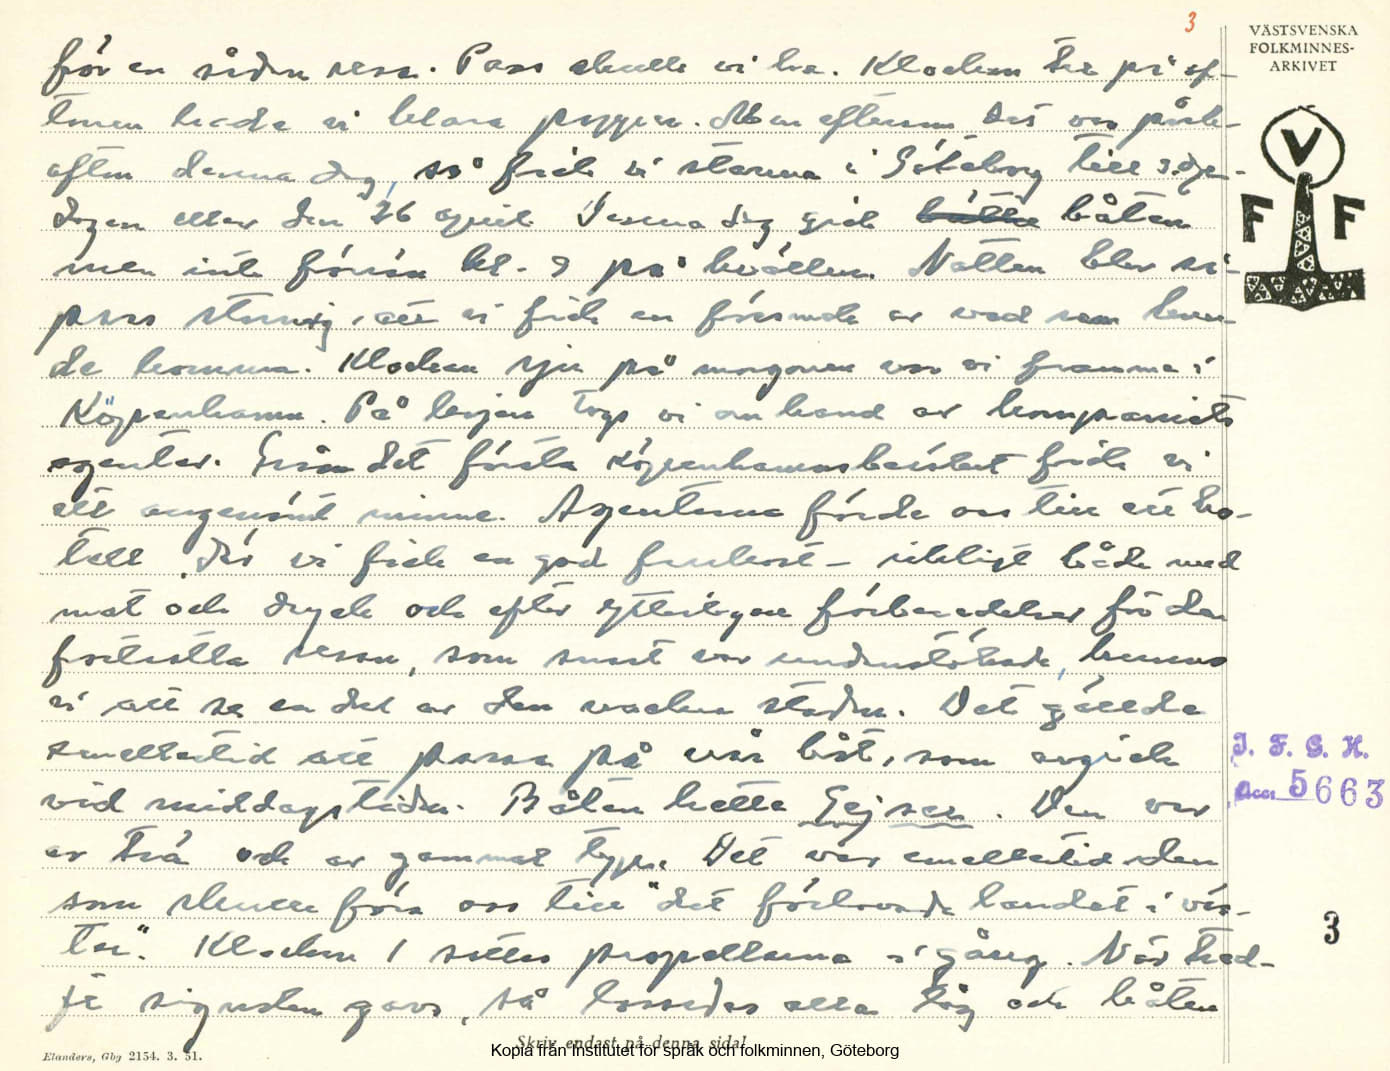 3
VÄSTSVENSKA
FOLKMINNES-
ARKIVET
för en sådan resa. Pass skulle vi ha. Klockan tre på ef-
tmen hade vi klara papper. Men eftersom det var påsk-
afton denna dag, så fick vi stanna i Göteborg till 3.dje-
dagen eller den 26 april. Denna dag gick båten
men inte förrän kl. 9 på kvällen. Natten blev så-
pass stormig, att vi fick en försmak av vad som kun-
de komma. Klockan sju på morgonen var vi framme i
Köpenhamn. På kajen togs vi om hand av kompaniets
agenter. Från det första Köpenhamnsbesöket fick vi
ett angenämt minne. Agenterna förde oss till ett ho-
tell där vi fick en god frukost – riktigt både med
mat och dryck och efter ytterligare förberedelser för den
fortsatta resan, som snart var undanstökade, hunno
vi att se en del av den vackra staden. Det gällde
emellertid att passa på vår båt, som avgick
vid middagstiden. Båten hette Gejser. Den var
av trä och av gammal typ. Det var emellertid den
som skulle föra oss till "det förlovade landet i väs-
ter". Klockan 1 sattes propellerna i gång. När tred-
je signalen gavs, så lossades alla tåg och båten
V
F F
I. F. G. H.
Acc. 5663
3
Skriv endast på denna sida!
Elanders, Gbg 2154. 3. 51.
Kopia från Institutet för språk och folkminnen, Göteborg